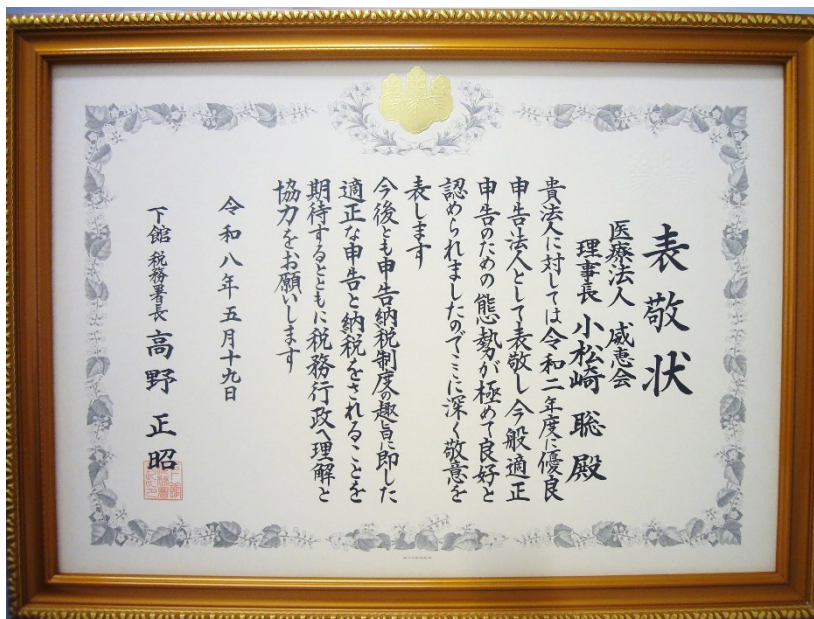 表敬状
医療法人 威恵会
理事長 小松崎 聡 殿
貴法人に対しては令和二年度に優良
申告法人として表敬し今般適正
申告のための態勢が極めて良好と
認められましたのでここに深く敬意を
表します
今後とも申告納税制度の趣旨に即した
適正な申告と納税をされることを
期待するとともに税務行政へ理解と
協力をお願いします
令和八年五月十九日
下館 税務署長 高野 正昭